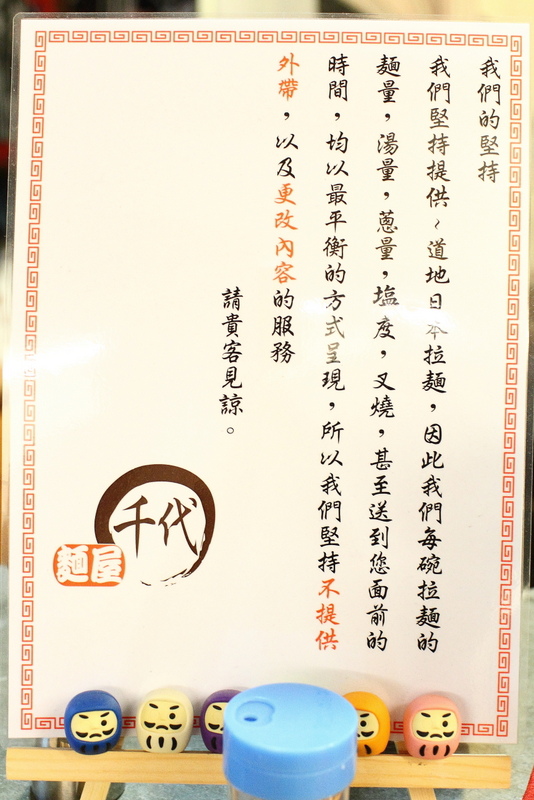 我們的堅持
我們堅持提供~道地日本拉麵，因此我們每碗拉麵的
麵量，湯量，蔥量，塩度，叉燒，甚至送到您面前的
時間，均以最平衡的方式呈現，所以我們堅持不提供
外帶，以及更改內容的服務
請貴客見諒。
千代
麵屋